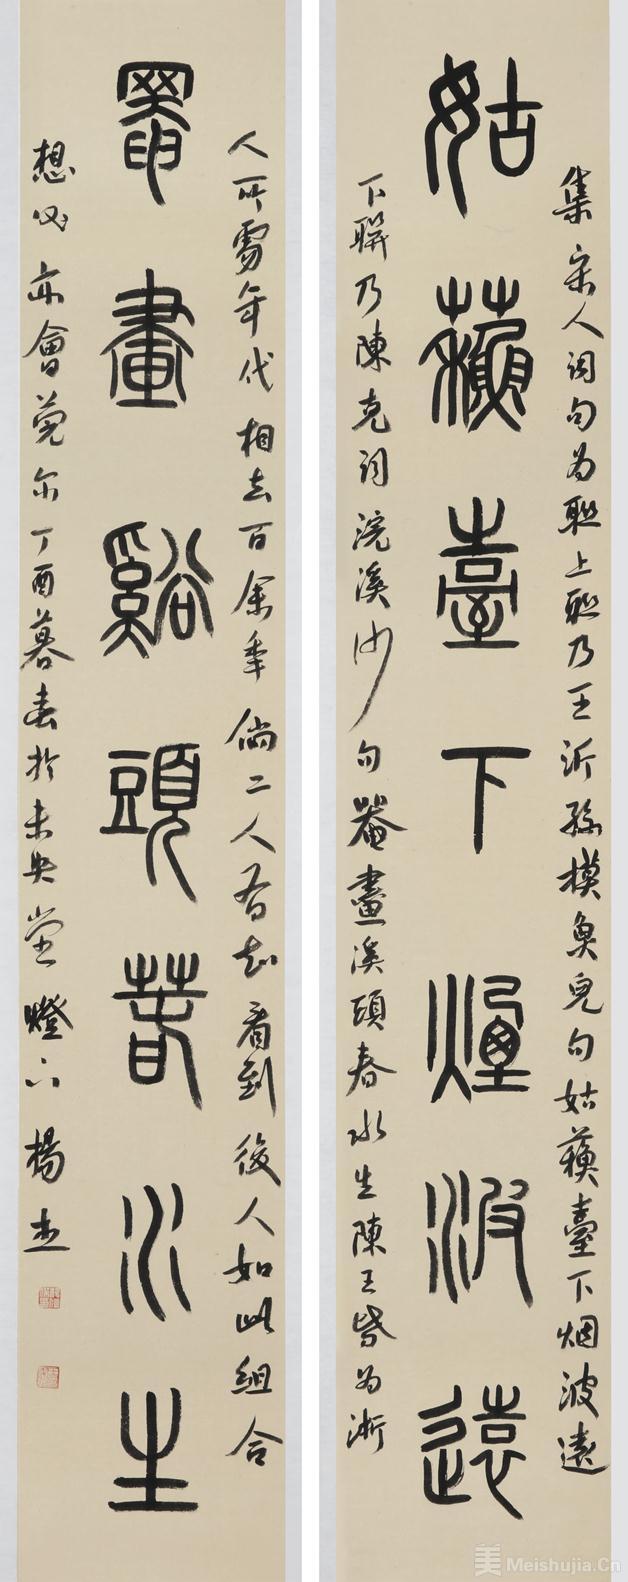 姑蘇臺下煙波遠
集宋人詞句為聯上聯乃王沂孫摸魚兒句姑蘇臺下烟波遠
下聯乃陳克詞浣溪沙句罨畫溪頭春水生陳王皆為浙
罨畫谿頭春水生
人所處年代相去百余年倘二人有知看到後人如此組合
想必亦會莞尔丁酉暮春於未央堂燈下楊杰
美 Meishujia.Cn